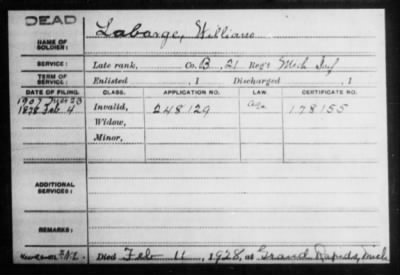 DEAD
NAME OF SOLDIER: Labarge, William
SERVICE: Late rank, Co. B, 21 Reg't Mich Inf
TERM OF SERVICE: Enlisted , 1 Discharged , 1
DATE OF FILING. CLASS. APPLICATION NO. LAW. CERTIFICATE NO.
1907
1878 Feb. 4. Invalid, 248129 178155
Widow,
Minor,
ADDITIONAL SERVICES:
REMARKS:
Died Feb 11, 1928, at Grand Rapids, Mich